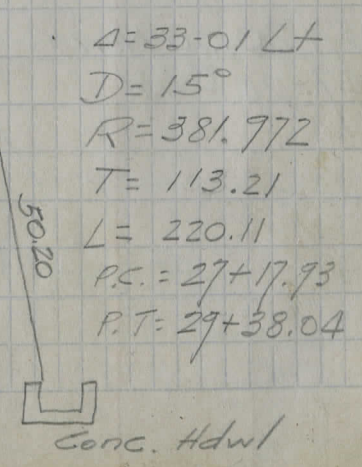 Δ = 33-01 Lt
D = 15°
R = 381.972
T = 113.21
L = 220.11
P.C. = 27+17.93
P.T = 29+38.04
50.20
Conc. Hdwl